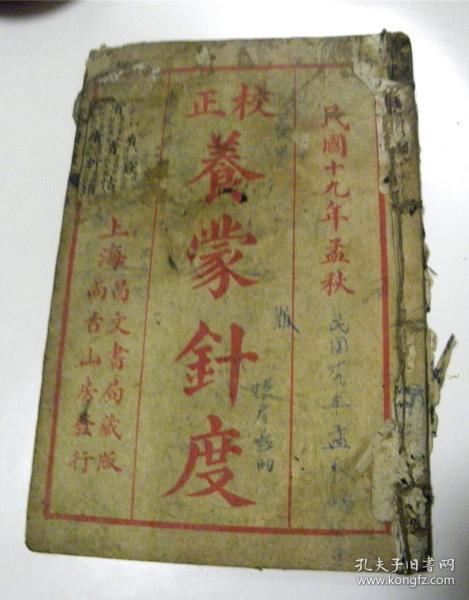 民國十九年孟秋
校正
養蒙針度
上海昌文書局藏版
尚古山房發行
民国十九年孟秋
孔夫子旧书网
www.kongfz.com